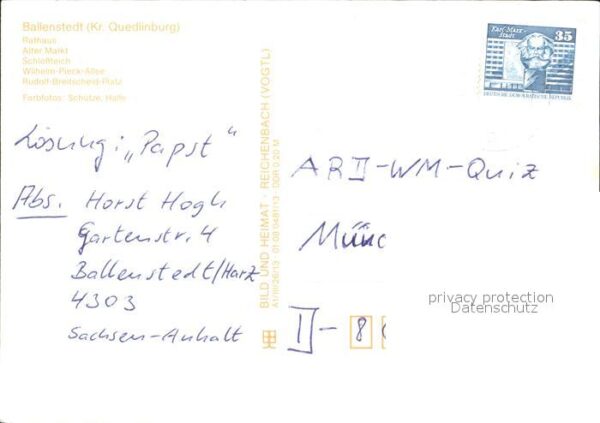 Ballenstedt (Kr. Quedlinburg)
Rathaus
Alter Markt
Schloßteich
Wilhelm-Pieck-Allee
Rudolf-Breitscheid-Platz
Farbfotos: Schütze, Halle
Lösung: „Papst“
Abs. Horst Hogh
Gartenstr. 4
Ballenstedt/Harz
4303
Sachsen-Anhalt
BILD UND HEIMAT · REICHENBACH (VOGTL)
DDR 0,20 M
Karl-Marx-
Stadt
35
DEUTSCHE DEMOKRATISCHE REPUBLIK
ARD-WM-Quiz
Münc
privacy protection
Datenschutz
D-8